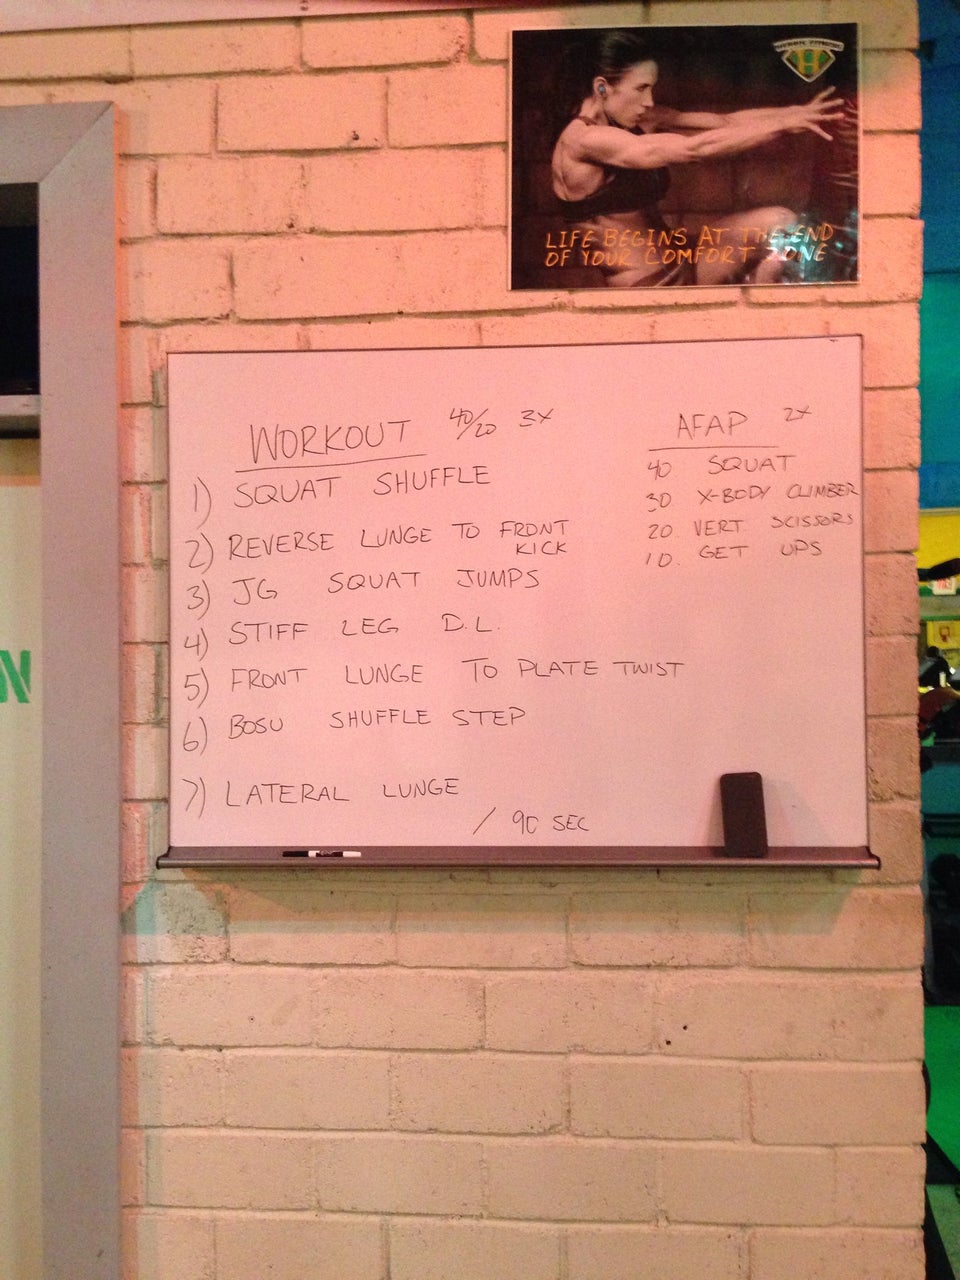 HERON FITNESS
H
LIFE BEGINS AT THE END
OF YOUR COMFORT ZONE
WORKOUT 40/20 3X
1) SQUAT SHUFFLE
2) REVERSE LUNGE TO FRONT
KICK
3) JG SQUAT JUMPS
4) STIFF LEG D.L.
5) FRONT LUNGE TO PLATE TWIST
6) BOSU SHUFFLE STEP
7) LATERAL LUNGE
/ 90 SEC
AFAP 2X
40 SQUAT
30 X-BODY CLIMBER
20 VERT SCISSORS
10. GET UPS
N